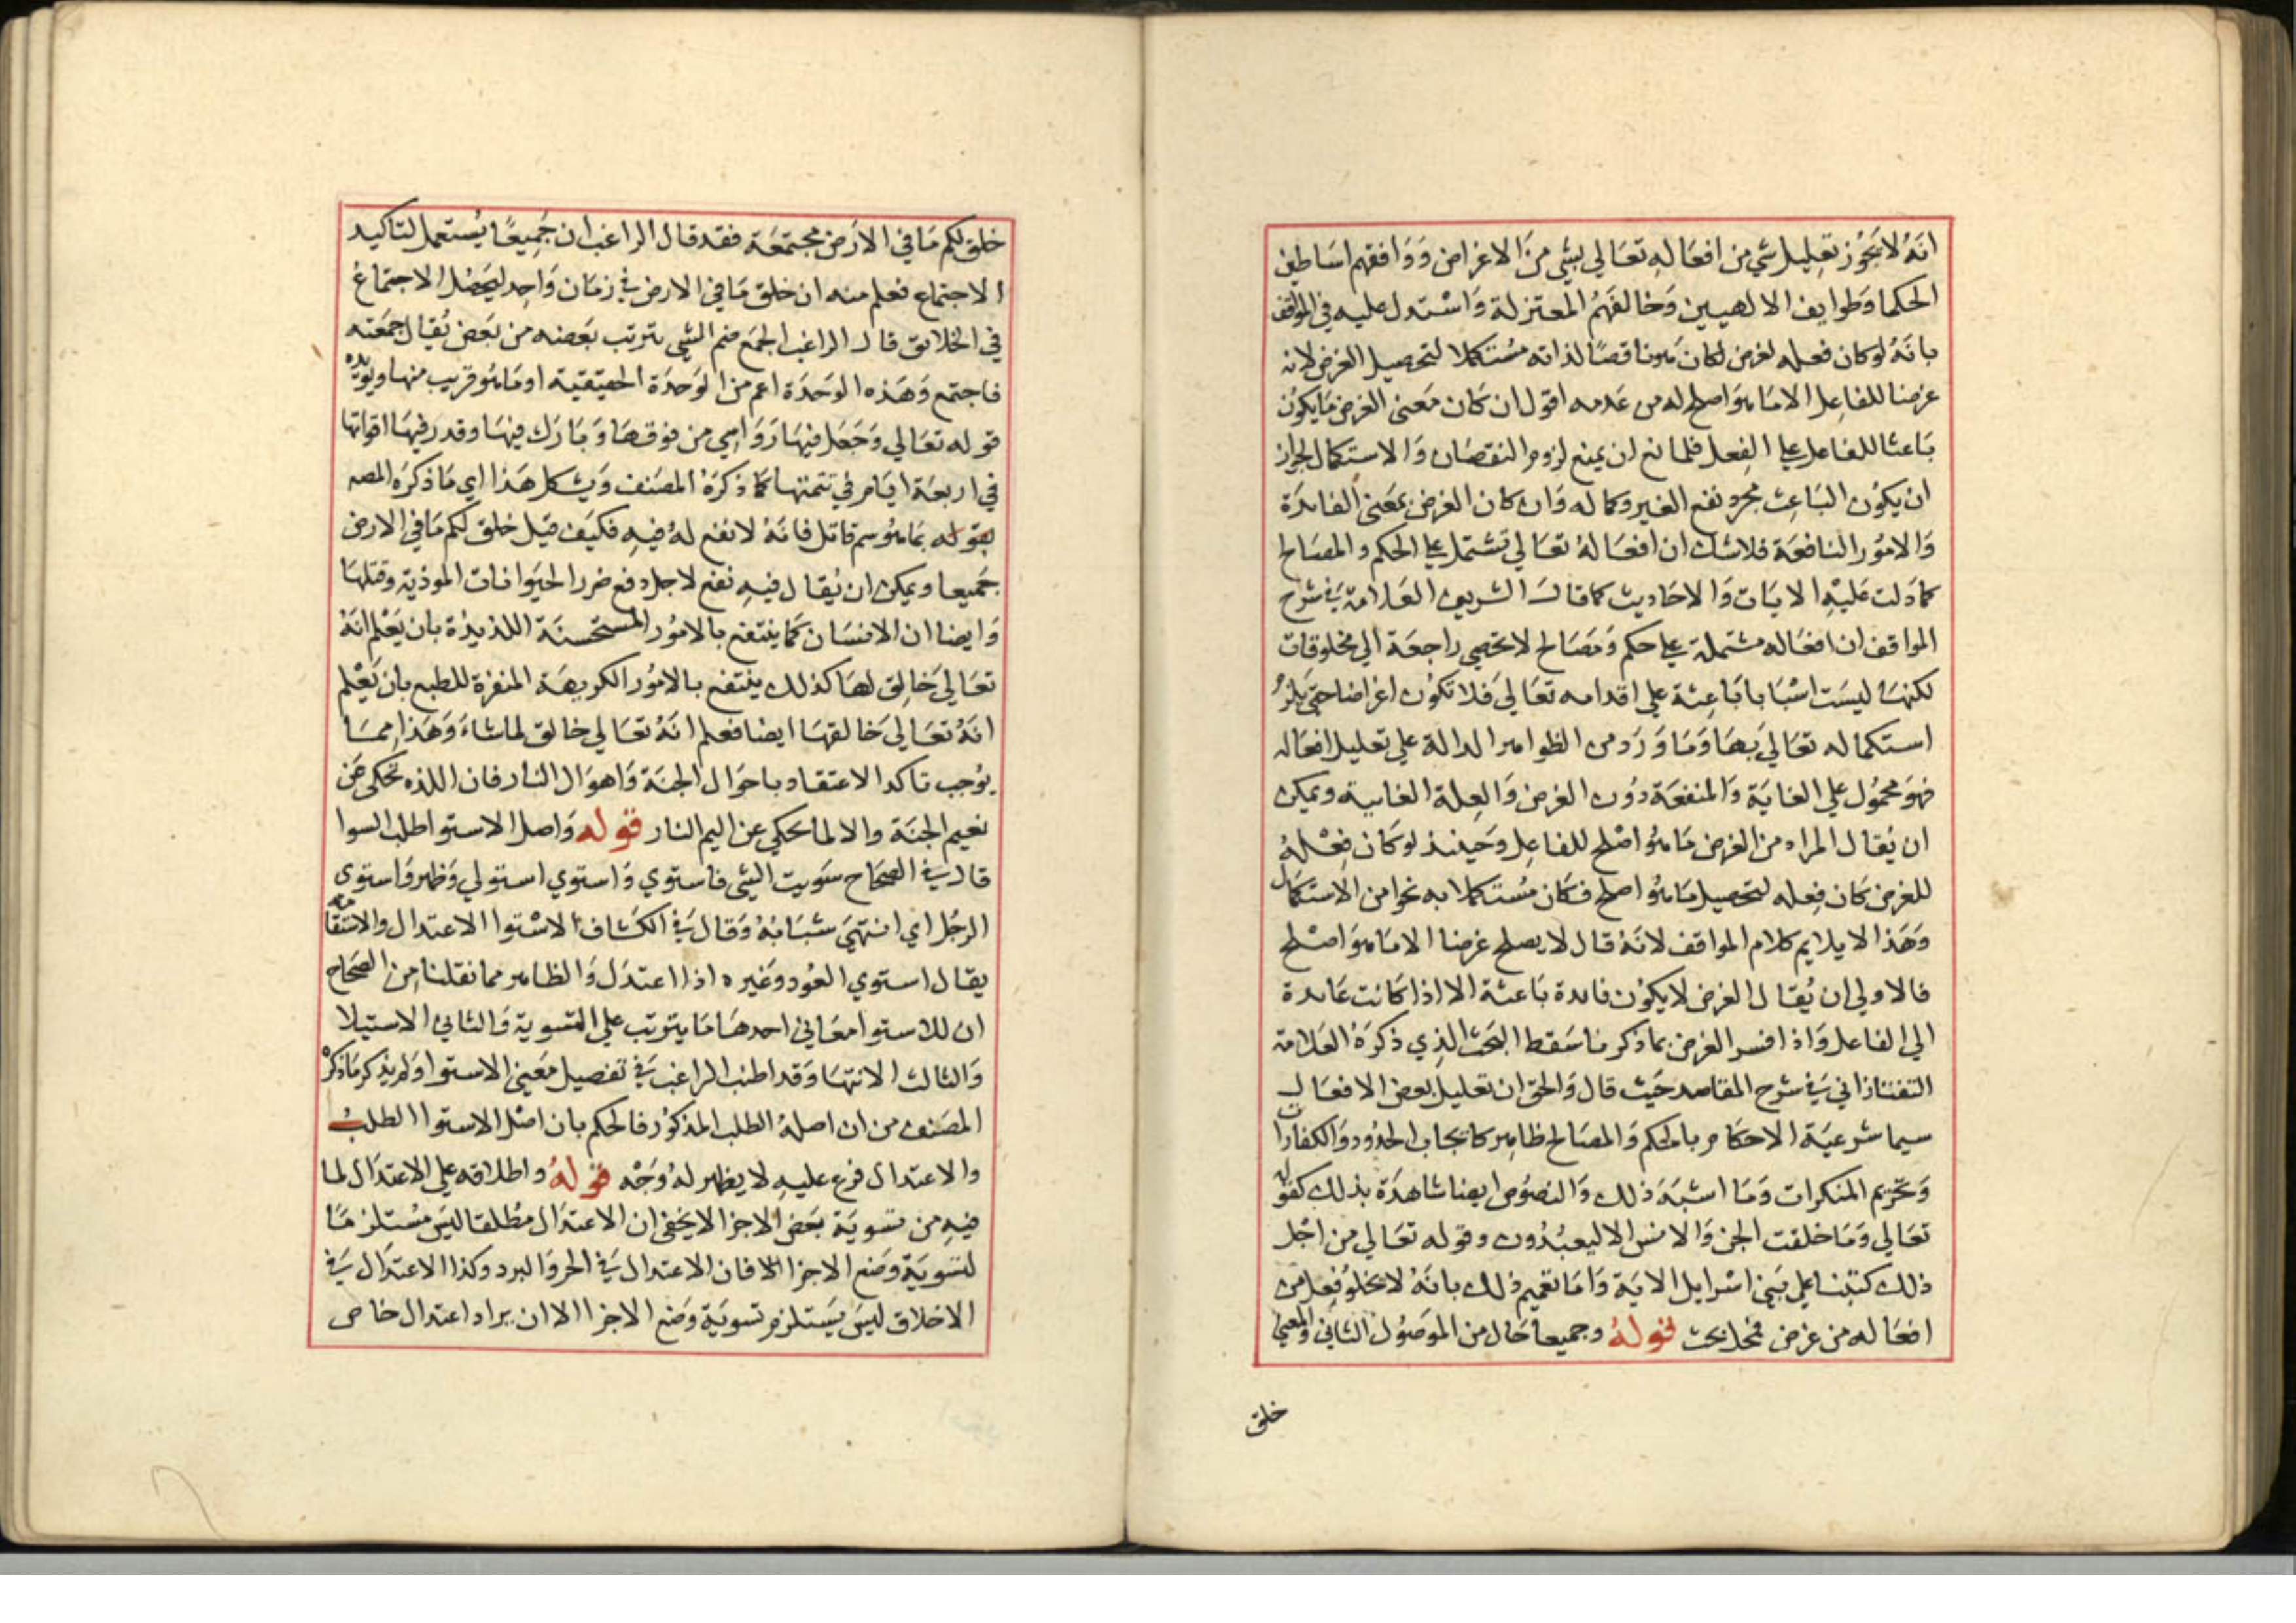 انه لا يجوز تعليل شي من افعاله تعالي بشي من الاغراض ووافقهم اساطين
الحكما وطوايف الالهيين وخالفهم المعتزلة واستدل عليه في المواقف
بانه لو كان فعله لغرض لكان هو ناقصا لذاته مستكملا لتحصيل الغرض لانه
غرضنا للفاعل الا ما هو اصلح له من عدمه اقول ان كان معنى الغرض ما يكون
باعثا للفاعل علي الفعل فلمانع ان يمنع لزوم النقصان والاستكمال لجواز
ان يكون الباعث مجرد نفع الغير وكماله وان كان الغرض بمعنى الفايدة
والامور النافعة فلا شك ان افعاله تعالي تشتمل علي الحكم والمصالح
كما دلت عليه الايات والاحاديث كما قال الشريف العلامة في شرح
المواقف ان افعاله مشتملة علي حكم ومصالح لا تحصي راجعة الي مخلوقات
لكنها ليست اسبابا باعثة علي اقدامه تعالي فلا تكون اغراضا حتي يلزم
استكماله تعالي بها وما ورد من الظواهر الدالة علي تعليل افعاله
فهو محمول علي الغاية والمنفعة دون الغرض والعلة الغايية ويمكن
ان يقال المراد من الغرض ما هو اصلح للفاعل وحينئذ لو كان فعله
للغرض كان فعله لتحصيل ما هو اصلح فكان مستكملا به نحوا من الاستكمال
وهذا لا يلايم كلام المواقف لانه قال لا يصلح غرضنا الا ما هو اصلح
فالاولي ان يقال الغرض لا يكون فايدة باعثة الا اذا كانت عايدة
الي الفاعل واذا فسر الغرض بما ذكرنا سقط البحث الذي ذكره العلامة
التفتازاني في شرح المقاصد حيث قال والحق ان تعليل بعض الافعال
سيما شرعية الاحكام بالحكم والمصالح ظاهر كايجاب الحدود والكفارات
وتحريم المنكرات وما اشبه ذلك والنصوص ايضا شاهدة بذلك كقوله
تعالي وما خلقت الجن والانس الا ليعبدون وقوله تعالي من اجل
ذلك كتبنا علي بني اسرايل الاية واما تعميم ذلك بانه لا يخلو فعل من
افعاله من غرض فمحل بحث قوله وجميعا حال من الموصول الثاني والمعني
خلق
خلق لكم ما في الارض مجتمعة فقد قال الراغب ان جميعا يستعمل لتاكيد
الاجتماع فعلم منه ان خلق ما في الارض في زمان واحد ليحصل الاجتماع
في الخلايق قال الراغب الجمع ضم الشي بترتب بعضه من بعض يقال جمعته
فاجتمع وهذه الوحدة اعم من الوحدة الحقيقية او ما هو قريب منها ويؤيده
قوله تعالي وجعل فيها رواسي من فوقها وبارك فيها وقدر فيها اقواتها
في اربعة ايام في تتمتها كما ذكره المصنف ويشكل هذا اي ما ذكره المصه
بقوله بما هو سم قاتل فانه لا نفع له فيه فكيف قيل خلق لكم ما في الارض
جميعا ويمكن ان يقال فيه نفع لاجل دفع ضرر الحيوانات الموذية وقتلها
وايضا ان الانسان كما ينتفع بالامور المستحسنة اللذيذة بان يعلم انه
تعالي خالق لها كذلك ينتفع بالامور الكريهة المنفرة للطبع بان يعلم
انه تعالي خالقها ايضا فعلم انه تعالي خالق لما شاء وهذا مما
يوجب تاكد الاعتقاد باحوال الجنة واهوال النار فان اللذه تحكى عن
نعيم الجنة والالما يحكي عن اليم النار قوله واصل الاستوا طلب السوا
قال في الصحاح سويت الشي فاستوي واستوي استولي وظهر واستوى
الرجل اي انتهي شبابه وقال في الكشاف الاستوا الاعتدال والاستقامة
يقال استوي العود وغيره اذا اعتدل والظاهر مما نقلنا من الصحاح
ان للاستوا معاني احدها ما يترتب علي التسوية والثاني الاستيلا
والثالث الانتها وقد اطنب الراغب في تفصيل معني الاستوا ولم يذكر ما ذكره
المصنف من ان اصله الطلب المذكور فالحكم بان اصل الاستوا الطلب
والاعتدال فرع عليه لا يظهر له وجه قوله واطلاقه علي الاعتدال لما
فيه من تسوية بعض الاجزا لا يخفي ان الاعتدال مطلقا ليس مستلزما
لتسوية وضع الاجزا الا فان الاعتدال في الحر والبرد وكذا الاعتدال في
الاخلاق ليس يستلزم تسوية وضع الاجزا الا ان يراد اعتدال خاص